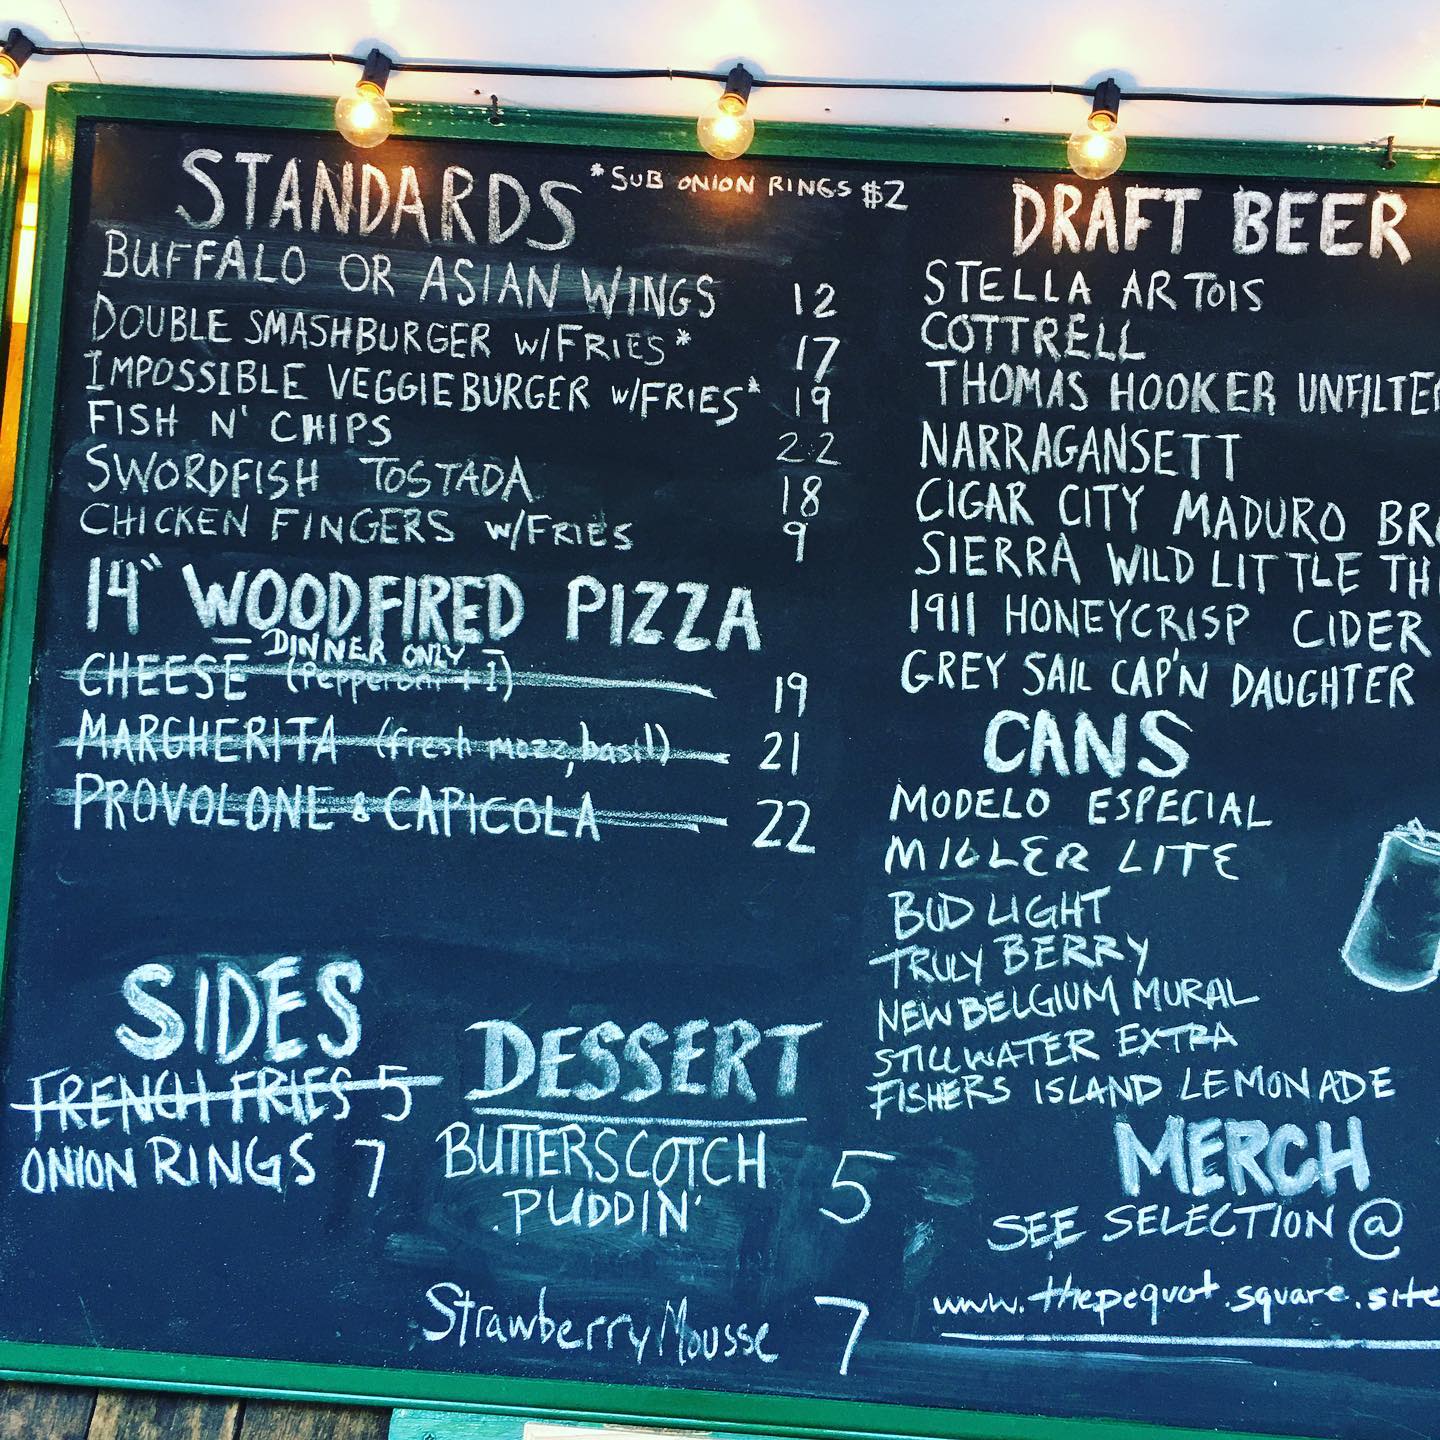 STANDARDS *SUB ONION RINGS $2
BUFFALO OR ASIAN WINGS 12
DOUBLE SMASHBURGER W/FRIES* 17
IMPOSSIBLE VEGGIEBURGER W/FRIES* 19
FISH N' CHIPS 22
SWORDFISH TOSTADA 18
CHICKEN FINGERS W/FRIES 9
14" WOODFIRED PIZZA
— DINNER ONLY —
CHEESE (Pepperoni + 1) 19
MARGHERITA (fresh mozz, basil) 21
PROVOLONE & CAPICOLA 22
SIDES
FRENCH FRIES 5
ONION RINGS 7
DESSERT
BUTTERSCOTCH
PUDDIN' 5
Strawberry Mousse 7
DRAFT BEER
STELLA ARTOIS
COTTRELL
THOMAS HOOKER UNFILTE
NARRAGANSETT
CIGAR CITY MADURO BR
SIERRA WILD LITTLE TH
1911 HONEYCRISP CIDER
GREY SAIL CAP'N DAUGHTER
CANS
MODELO ESPECIAL
MILLER LITE
BUD LIGHT
TRULY BERRY
NEW BELGIUM MURAL
STILLWATER EXTRA
FISHERS ISLAND LEMONADE
MERCH
SEE SELECTION @
www.thepequot.square.site